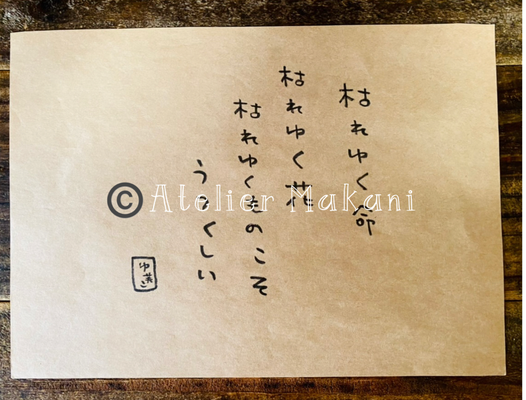 枯れゆく命
枯れゆく花
枯れゆくものこそ
うつくしい
© Atelier Makani